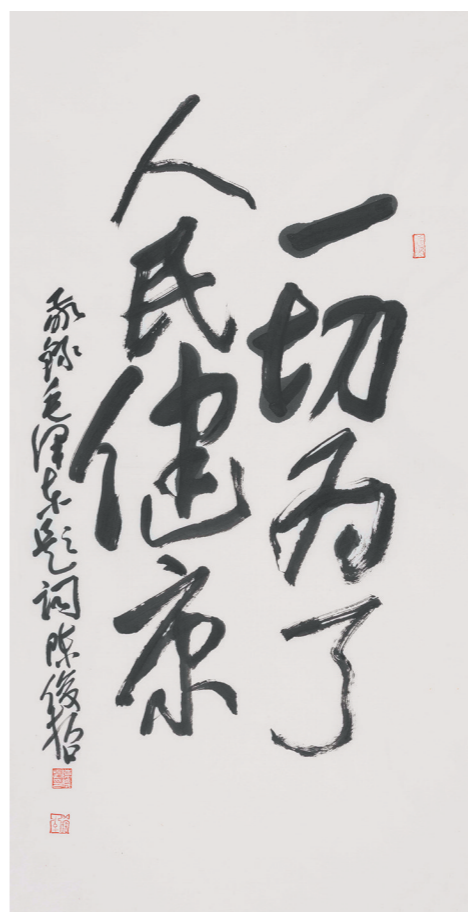 一切为了
人民健康
敬录毛泽东题词陈俊哲